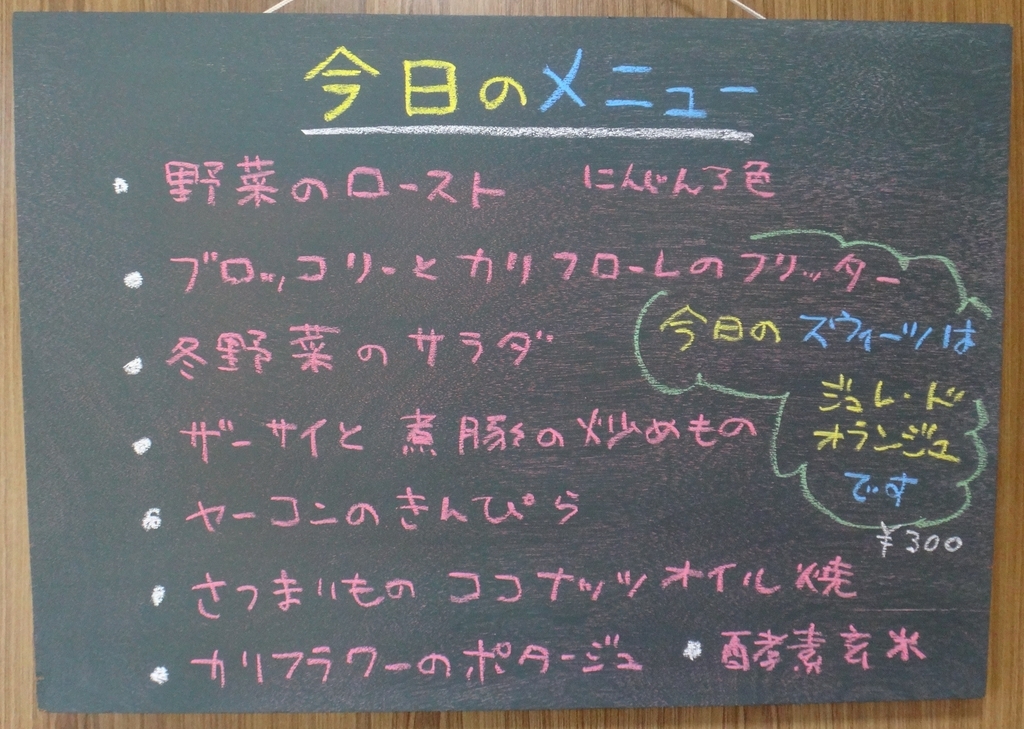 今日のメニュー
・野菜のロースト にんじん3色
・ブロッコリーとカリフローレのフリッター
・冬野菜のサラダ
・ザーサイと煮豚の炒めもの
・ヤーコンのきんぴら
・さつまいものココナッツオイル焼
・カリフラワーのポタージュ ・酵素玄米
今日のスウィーツは
ジュレ・ド
オランジュ
です
¥300